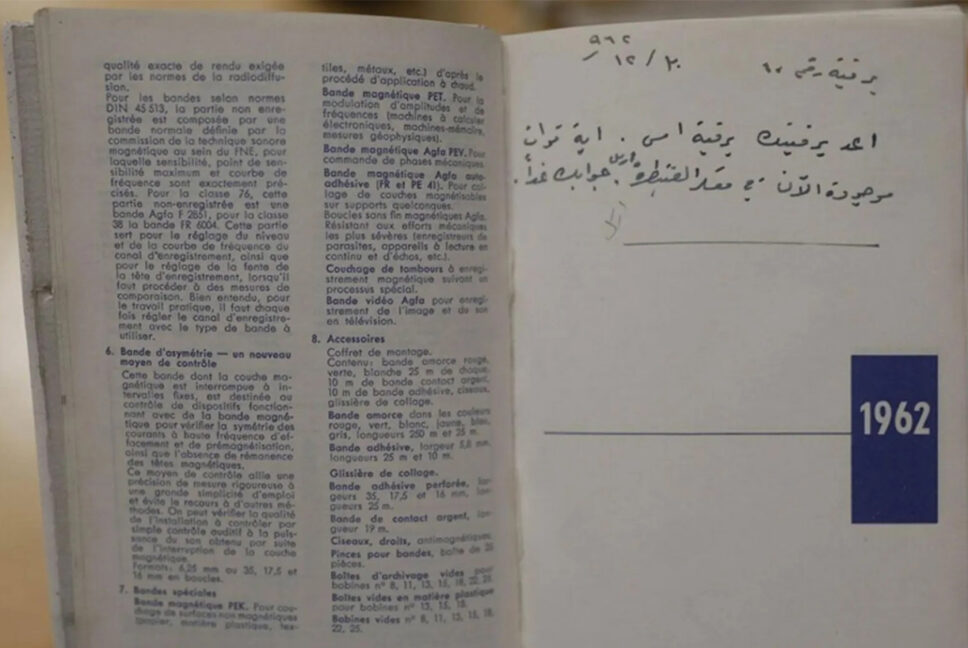 qualité exacte de rendu exigée
par les normes de la radiodiffu-
sion.
Pour les bandes selon normes
DIN 45 513, la partie non enre-
gistrée est composée par une
bande normale définie par la
commission de la technique sonore
magnétique au sein du FNE, pour
laquelle sensibilité, point de sen-
sibilité maximum et courbe de
fréquence sont exactement pré-
cisés. Pour la classe 76, cette
partie non-enregistrée est une
bande Agfa F 2651, pour la classe
38 la bande FR 6004. Cette partie
sert pour le réglage du niveau
et de la courbe de fréquence du
canal d'enregistrement, ainsi que
pour le réglage de la fente de
la tête d'enregistrement, lorsqu'il
faut procéder à des mesures de
comparaison. Bien entendu, pour
le travail pratique, il faut chaque
fois régler le canal d'enregistre-
ment avec le type de bande à
utiliser.
6. Bande d'asymétrie — un nouveau
moyen de contrôle
Cette bande dont la couche ma-
gnétique est interrompue à in-
tervalles fixes, est destinée au
contrôle de dispositifs fonction-
nant avec de la bande magné-
tique pour vérifier la symétrie des
courants à haute fréquence d'ef-
facement et de prémagnétisation,
ainsi que l'absence de rémanence
des têtes magnétiques.
Ce moyen de contrôle allie une
précision de mesure rigoureuse à
une grande simplicité d'emploi
et évite le recours à d'autres mé-
thodes. On peut vérifier la qualité
de l'installation à contrôler par
simple contrôle auditif à la puis-
sance du son obtenu par suite
de l'interruption de la couche
magnétique.
Formats: 6,25 mm ou 35, 17,5 et
16 mm en boucles.
7. Bandes spéciales
Bande magnétique PEK. Pour cou-
chage de surfaces non magnétiques
(papier, matière plastique, tex-
tiles, métaux, etc.) d'après le
procédé d'application à chaud.
Bande magnétique PET. Pour la
modulation d'amplitudes et de
fréquences (machines à calculer
électroniques, machines-mémoire,
mesures géophysiques).
Bande magnétique Agfa PEV. Pour
commande de phases mécaniques.
Bande magnétique Agfa auto-
adhésive (FR et PE 41). Pour col-
lage de couches magnétisables
sur supports quelconques.
Boucles sans fin magnétiques Agfa.
Résistant aux efforts mécaniques
les plus sévères (enregistreurs de
parasites, appareils à lecture en
continu et d'échos, etc.).
Couchage de tambours à enregi-
strement magnétique suivant un
processus spécial.
Bande vidéo Agfa pour enregi-
strement de l'image et du son
en télévision.
8. Accessoires
Coffret de montage.
Contenu: bande amorce rouge,
verte, blanche 25 m de chaque,
10 m de bande contact argent,
10 m de bande adhésive, ciseaux,
glissière de collage.
Bande amorce dans les couleurs
rouge, vert, blanc, jaune, bleu,
gris, longueurs 250 m et 25 m.
Bande adhésive, largeur 5,8 mm,
longueurs 25 m et 10 m.
Glissière de collage.
Bande adhésive perforée, lar-
geurs 35, 17,5 et 16 mm, lon-
gueurs 25 m.
Bande de contact argent, lon-
gueur 19 m.
Ciseaux, droits, antimagnétiques.
Pinces pour bandes, boîte de 25
pièces.
Boîtes d'archivage vides pour
bobines n° 8, 11, 13, 15, 18, 22, 25.
Boîtes vides en matière plastique
pour bobines n° 13, 15, 18.
Bobines vides n° 8, 11, 13, 15, 18,
22, 25.
برقية رقم
٩٦٢
اعد برقيتك برقية امس . اية قوات
موجودة الآن في القنيطرة . ارسل جوابك غداً .
1962